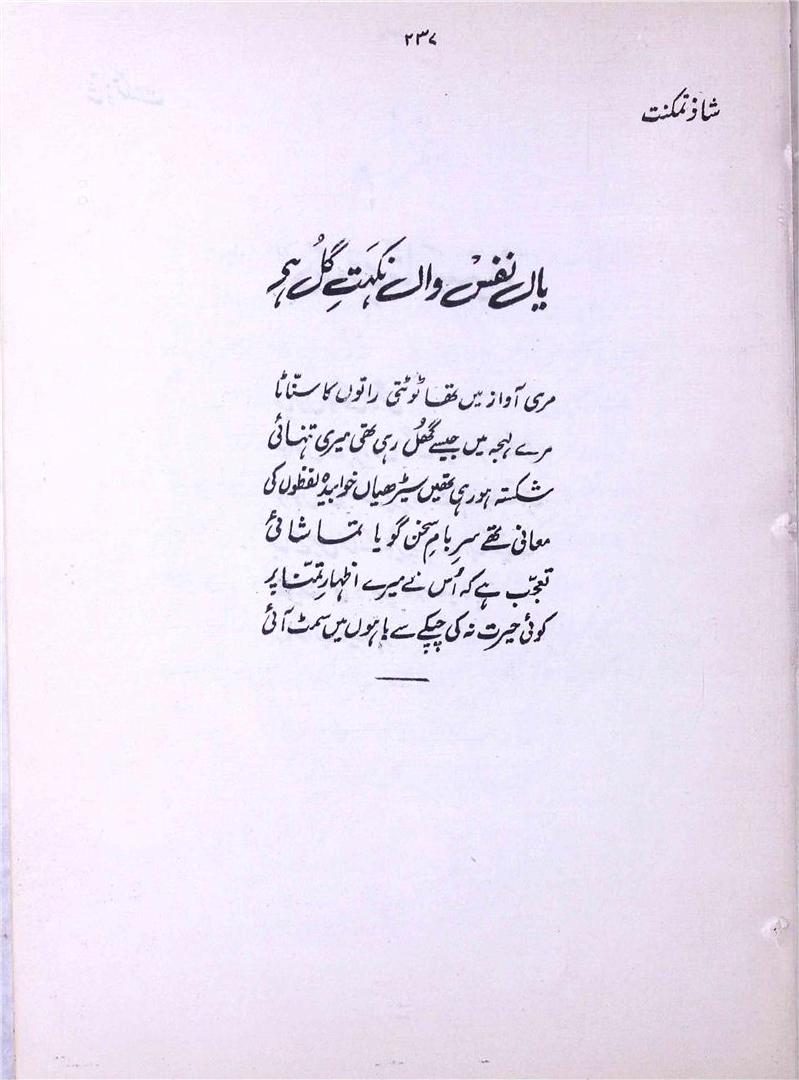 ۲۳۷
شاذ تمکنت
یاں نفس واں نکہتِ گُل ہے
مری آواز میں تھا ٹوٹتی راتوں کا سنّاٹا
مرے لہجہ میں جیسے گھُل رہی تھی میری تنہائی
شکستہ ہو رہی تھیں سیڑھیاں خوابیدہ لفظوں کی
معانی تھے سرِ بامِ سخن گویا تماشائی
تعجّب ہے کہ اُس نے میرے اظہارِ تمنّا پر
کوئی حیرت نہ کی چپکے سے باہوں میں سمٹ آئی